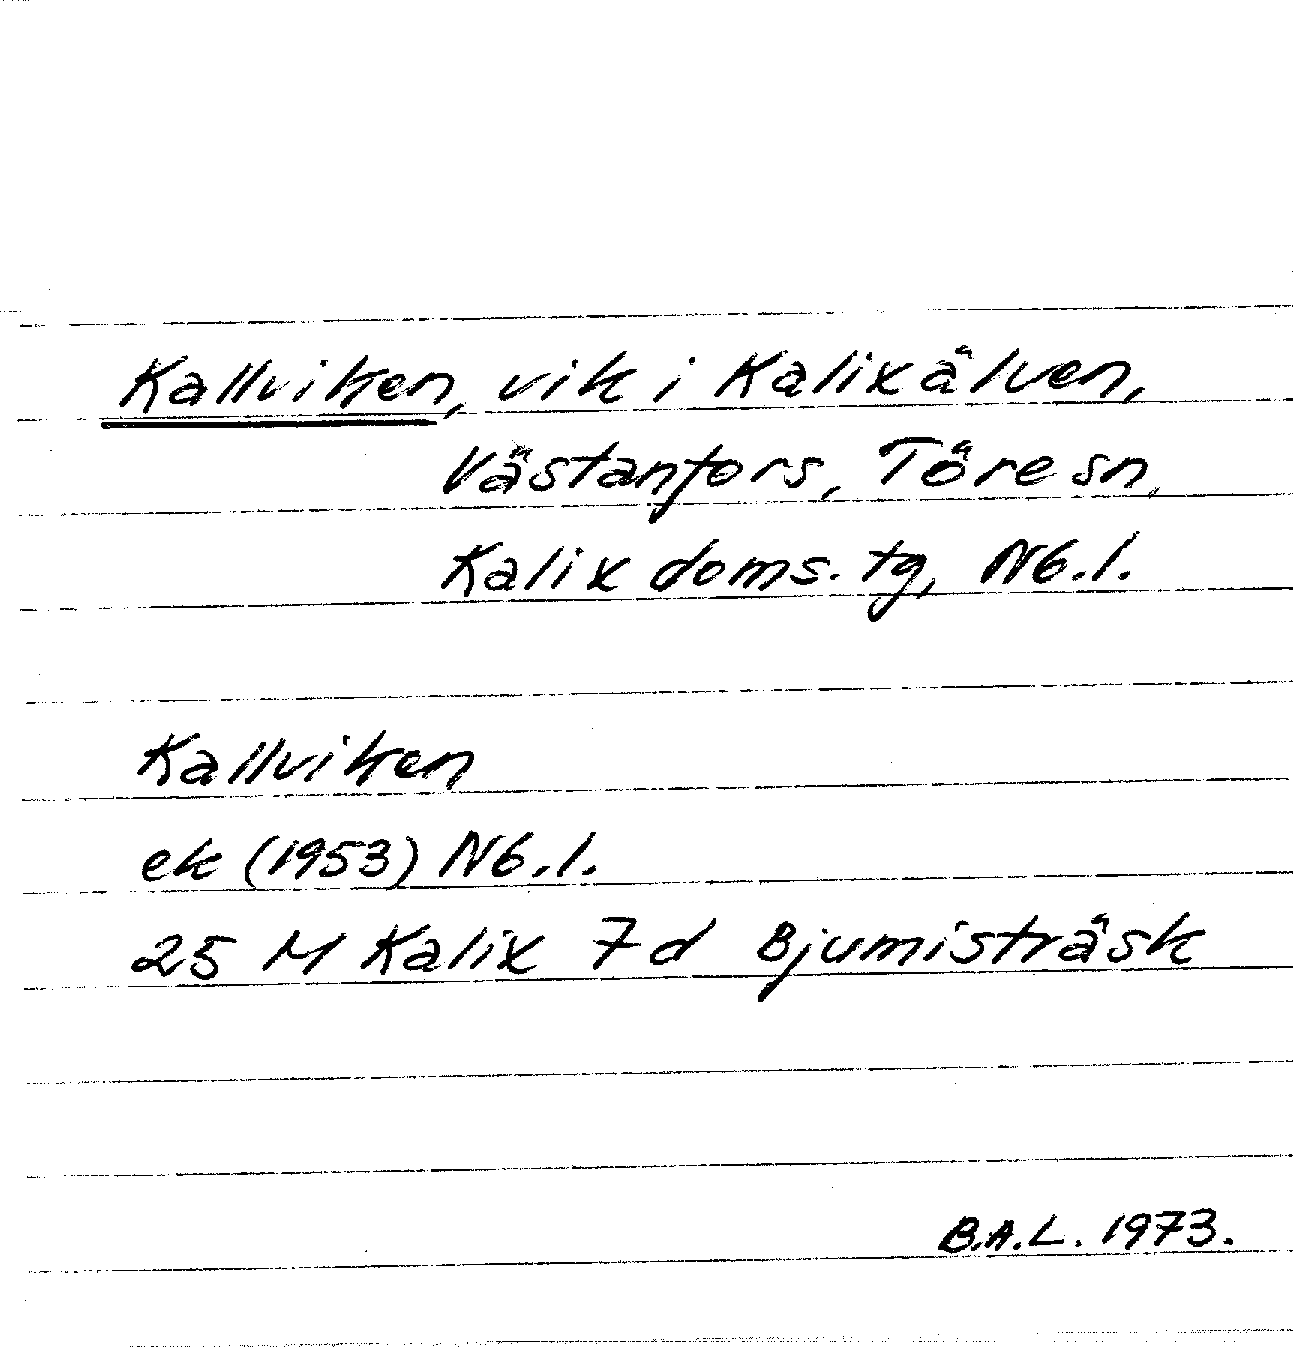 Kallviken, vik i Kalixälven,
Västanfors, Töre sn,
Kalix doms. tg, Nb.l.
Kallviken
ek (1953) Nb.l.
25 M Kalix 7d Bjumisträsk
B.A.L. 1973.